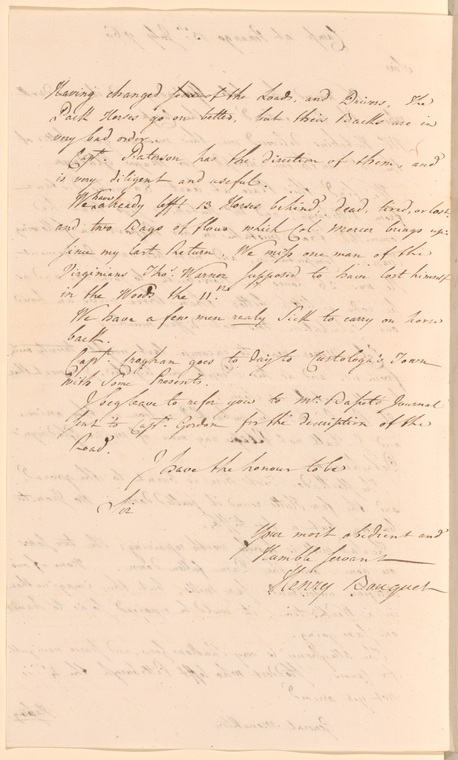 Having changed some of the Loads, and Drivers, The
Pack Horses go on better, but their Backs are in
very bad order.
Capt. Paterson has the direction of them, and
is very diligent and useful.
We have already lefft 13 Horses behind, dead, tired, or lost,
and two Bags of flour which Col. Mercer brings up:
Since my last Return We miss one man of the
Virginians Thos. Warnor supposed to have lost himself
in the Woods the 11.
We have a few men realy Sick to carry on horse
back.
Capt. Croghan goes to Day to Custologa's Town
with Some Presents.
I beg leave to refer you to Mr. Basset's Journal
Sent to Capt. Gordon for the description of the
Road.
I have the honour to be
Sir
Your most obedient and
Humble Servant
Henry Bouquet